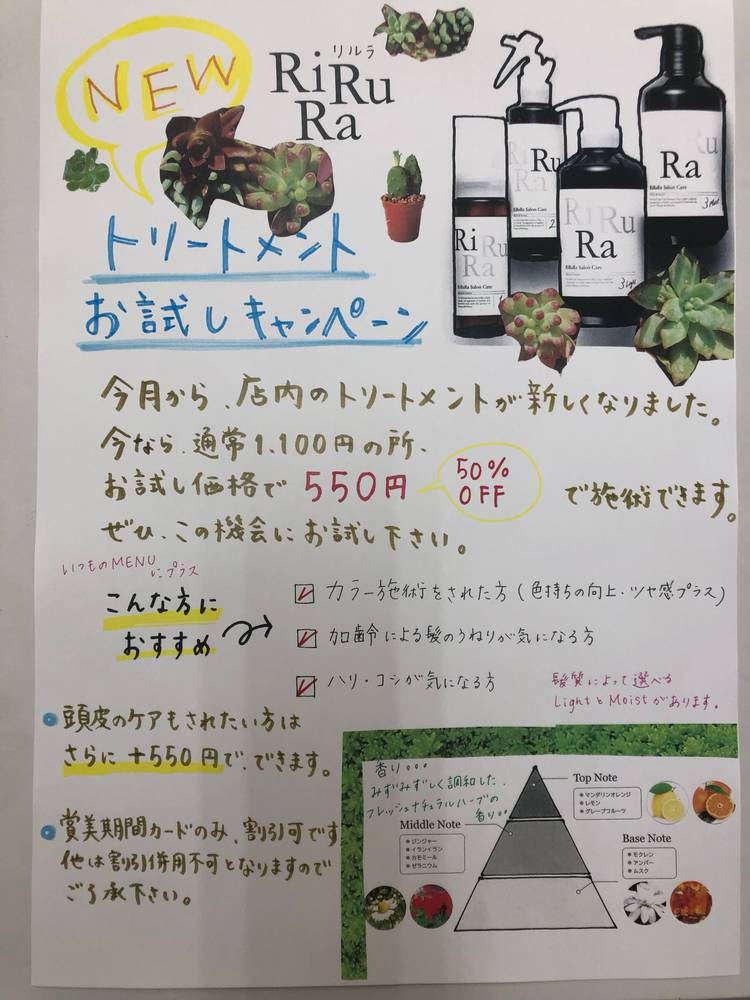 NEW
リルラ
RiRu
Ra
RiRu
Ra
RiRu
RiRu
Ra
RiRu
Ra
RiRuRa Salon Care
RiRuRa Salon Care
RiRuRa Salon Care
2
3 Light
3 Moist
トリートメント
お試しキャンペーン
今月から、店内のトリートメントが新しくなりました。
今なら、通常1,100円の所、
お試し価格で 550円 50% OFF で施術できます。
ぜひ、この機会にお試し下さい。
いつものMENUにプラス
こんな方に
おすすめ
カラー施術をされた方(色持ちの向上・ツヤ感プラス)
加齢による髪のうねりが気になる方
ハリ・コシが気になる方
髪質によって選べる
LightとMoistがあります。
頭皮のケアもされたい方は
さらに+550円で、できます。
賞美期間カードのみ、割引可です
他は割引併用不可となりますので
ご了承下さい。
香り。。。
みずみずしく調和した、
フレッシュナチュラルハーブの
香り。。
Top Note
マンダリンオレンジ
レモン
グレープフルーツ
Middle Note
ジンジャー
イランイラン
カモミール
ゼラニウム
Base Note
モクレン
アンバー
ムスク